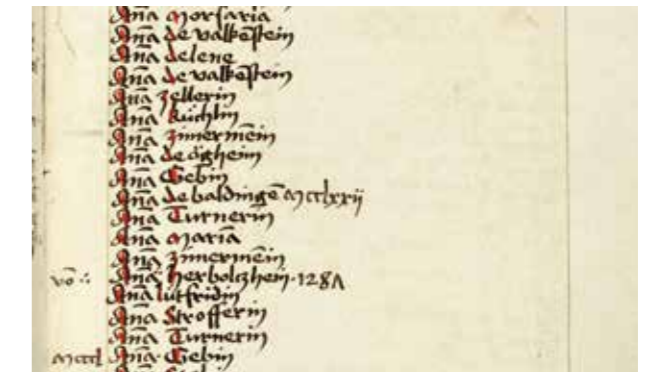 Ana Morsaria
Ana de valkēstein
Ana delene
Ana de valkēstein
Ana zellerin
Ana Küchlin
Ana zimermēin
Ana de ögheim
Ana Gebin
Ana de baldingē Mcclxxij
Ana Turnerin
Ana Maria
Ana zimermēin
vō ∴ Ana Herboltzhein · 1281
Ana lutfridin
Ana Strofferin
Ana Turnerin
Mccl Ana Gebin